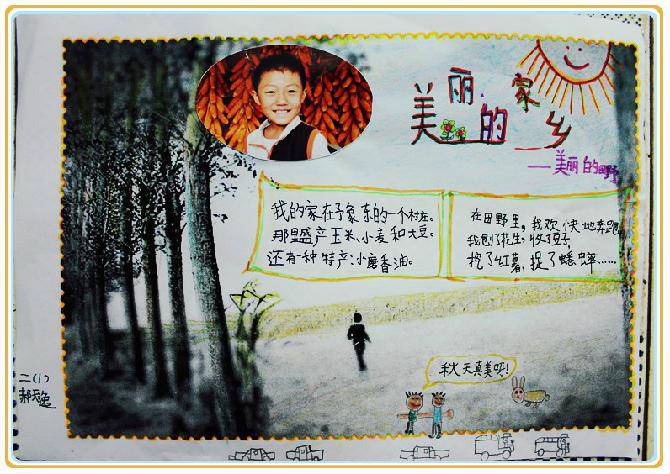 美丽的家乡
——美丽的田野
我的家在予象东的一个村庄。
那里盛产玉米、小麦和大豆。
还有一种特产:小磨香油。
在田野里,我欢快地奔跑
我刨了花生,收了豆子,
挖了红薯,捉了蟋蟀……
秋天真美呀!
二(1)